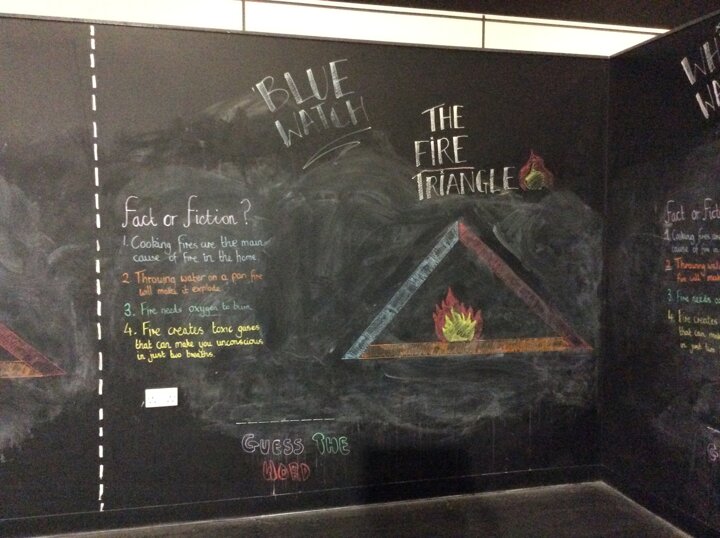 BLUE
WATCH
THE
FIRE
TRIANGLE
Fact or Fiction?
1. Cooking fires are the main
cause of fire in the home.
2. Throwing water on a pan fire
will make it explode.
3. Fire needs oxygen to burn.
4. Fire creates toxic gases
that can make you unconscious
in just two breaths.
GUESS THE
WORD
Fact or Fi
1. Cooking fires
cause of fire
2. Throwing wat
fire will mak
3. Fire needs o
4. Fire creates
that can m
in just tw